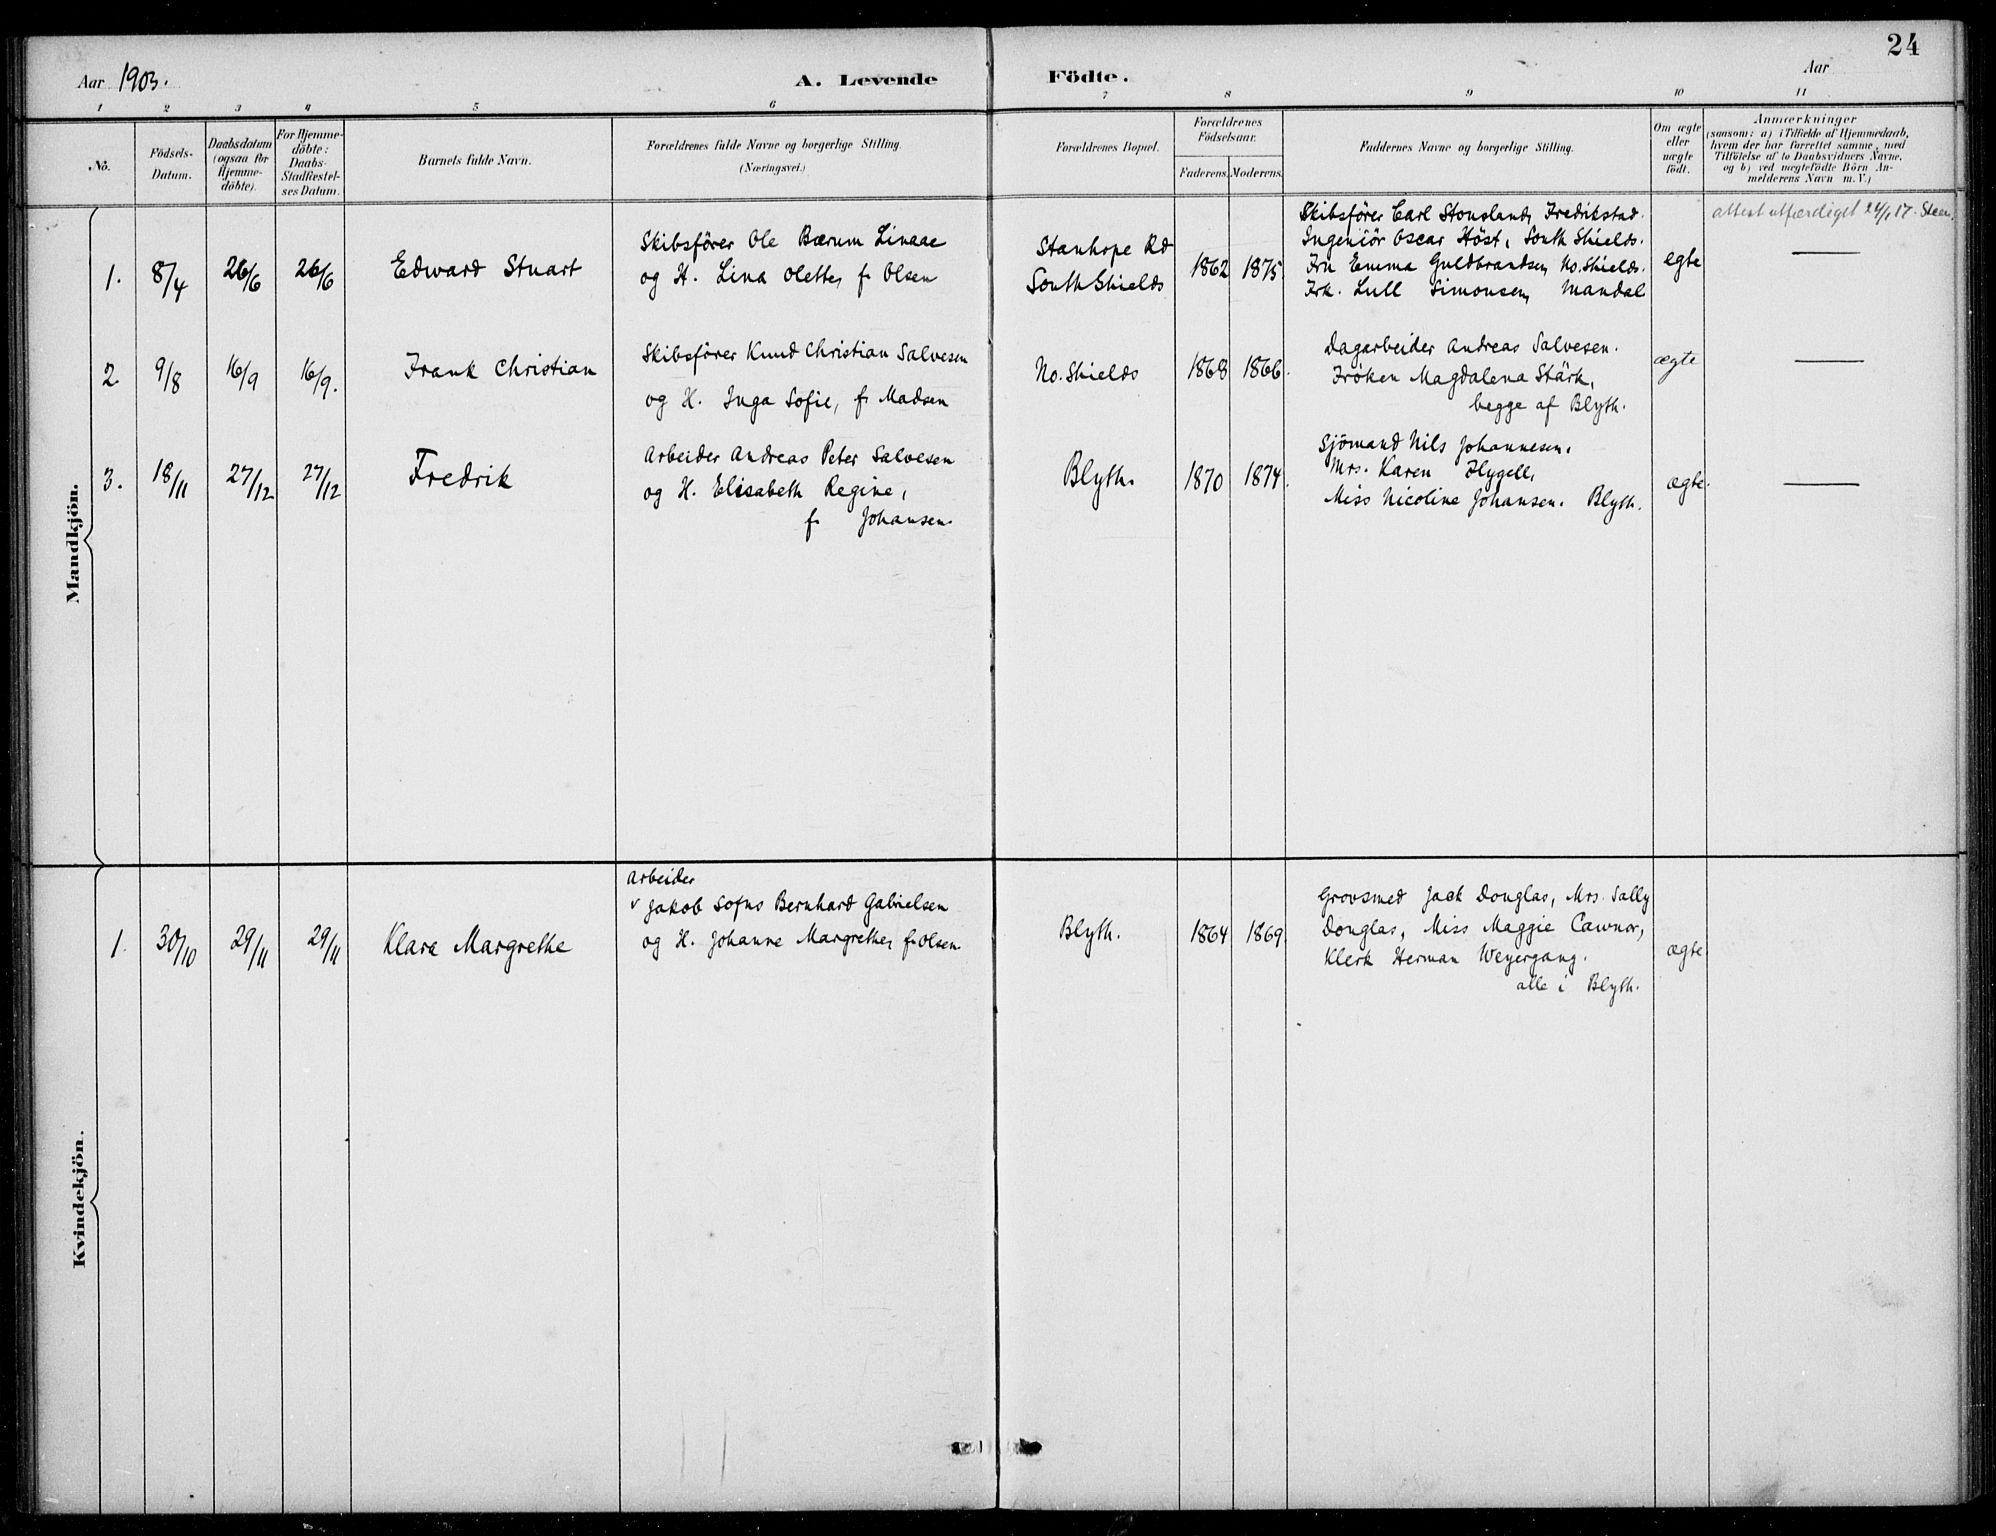 24
Aar 1903.
A. Levende Födte.
Aar
1 2 3 4 5 6 7 8 9 10 11
No.
Födsels-Datum.
Daabsdatum (ogsaa for Hjemme-döbte).
For Hjemme-döbte: Daabs-Stadfæstel-ses Datum.
Barnets fulde Navn.
Forældrenes fulde Navne og borgerlige Stilling. (Næringsvei.)
Forældrenes Bopæl.
Forældrenes Födselsaar.
Faderens. Moderens.
Faddernes Navne og borgerlige Stilling.
Om ægte eller uægte födt.
Anmærkninger
(saasom: a) i Tilfælde af Hjemmedaab,
hvem der har forrettet samme, med
Tilföielse af to Daabsvidners Navne,
og b) ved uægtefödte Börn An-
melderens Navn m. V.)
Mandkjön.
1. 8/4 26/6 26/6 Edward Stuart
Skibsförer Ole Bærum Linaae
og H. Lina Olette, f. Olsen
Stanhope Rd
South Shields
1862 1875.
Skibsförer Carl Stousland, Fredrikstad.
Ingeniör Oscar Höst, South Shields.
Fru Emma Guldbrandsen, No. Shields.
Frk. Lull Simonsen, Mandal
egte
attest utfærdiget 24/1 17. Steen.
2. 9/8 16/9 16/9. Frank Christian
Skibsförer Knud Christian Salvesen
og H. Inga Sofie, f. Madsen
No. Shields
1868 1866.
Dagarbeider Andreas Salvesen.
Fröken Magdalena Stärk,
begge af Blyth.
ægte
3. 18/11 27/12 27/12 Fredrik
Arbeider Andreas Peter Salvesen
og H. Elisabeth Regine,
f. Johansen.
Blyth.
1870 1874.
Sjömand Nils Johannesen,
Mrs. Karen Hygell,
Miss Nicoline Johansen. Blyth.
ægte.
Kvindekjön.
1. 30/10 29/11 29/11 Klara Margrethe
Arbeider
Jakob Sofus Bernhard Gabrielsen
og H. Johanne Margrethe, f. Olsen.
Blyth.
1864 1869.
Grovsmed Jack Douglas, Mrs. Sally
Douglas, Miss Maggie Cawnor,
Klerk Herman Weyergang.
alle i Blyth.
ægte